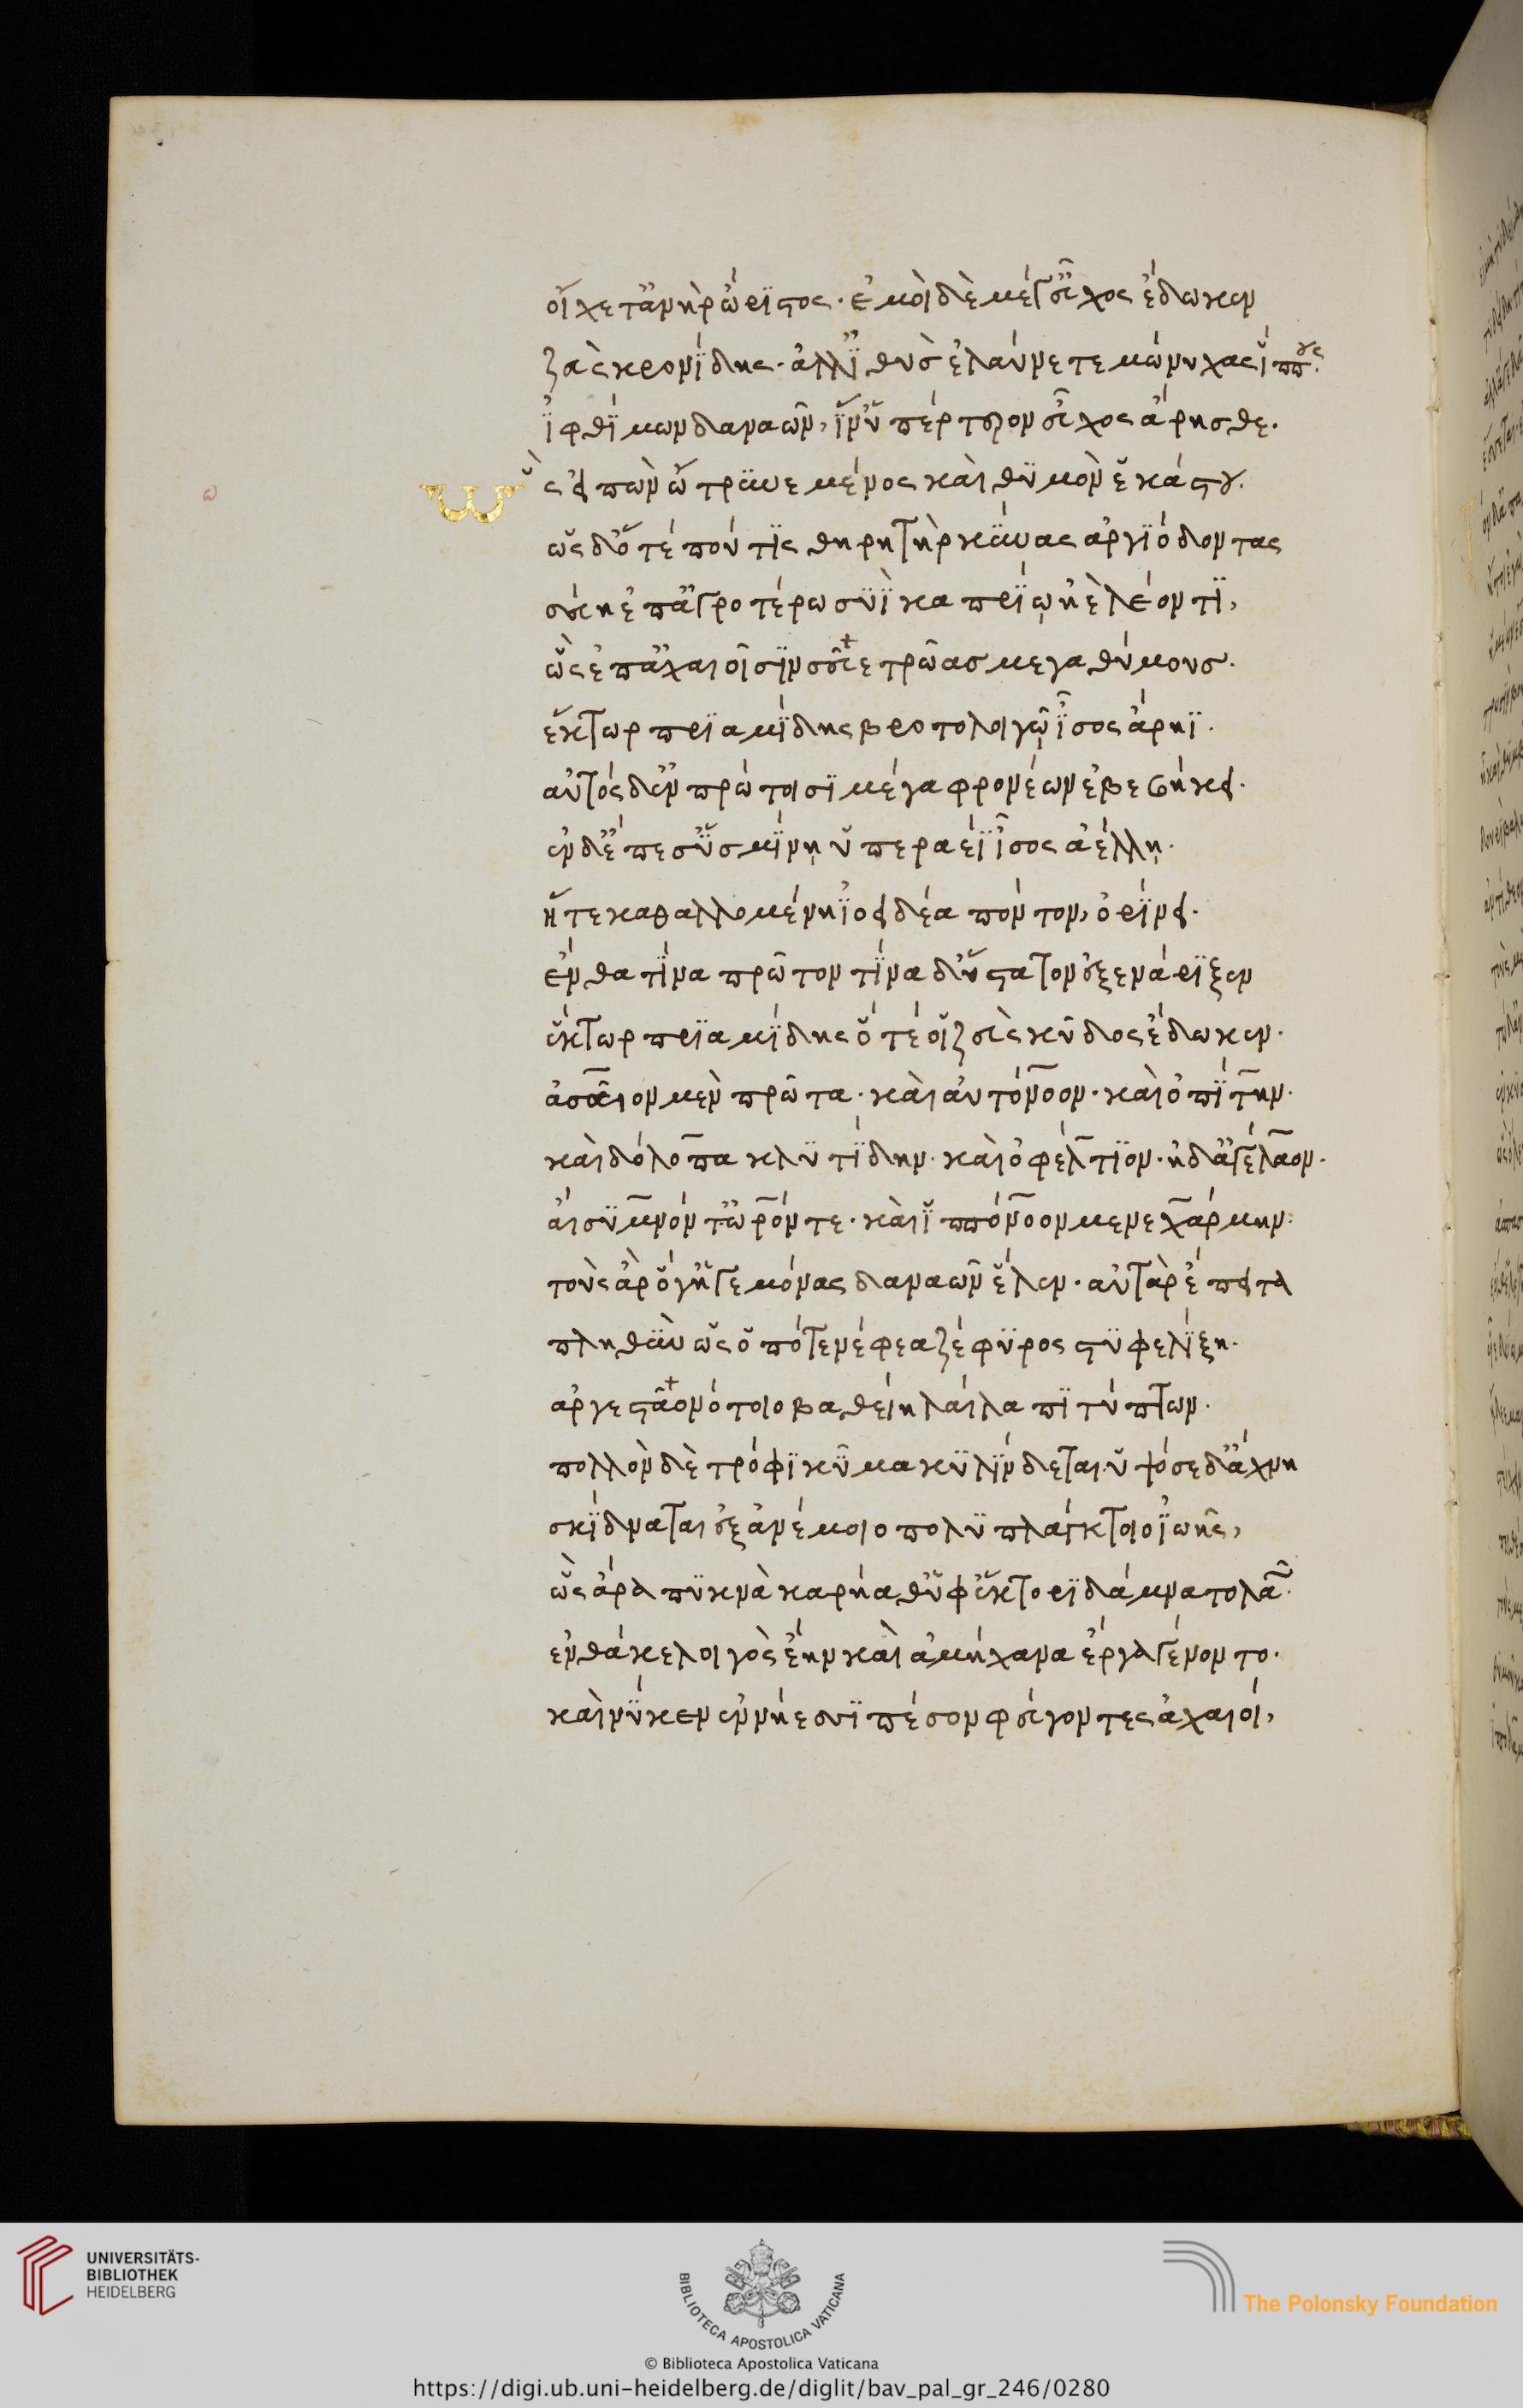 οἴχετ' ἀνὴρ ὤριστος· ἐμοὶ δὲ μέγ' εὖχος ἔδωκεν
ζὰς κρονίδης· ἀλλ' ἰθὺσ ἐλαύνετε μώνυχας ἵππους·
ἰφθίμων δαναῶν, ἵν' ὑπέρτερον εὖχος ἄρησθε.
ὣς εἰπὼν ὤτρυνε μένος καὶ θυμὸν ἑκάστου.
ὡς δ' ὅτέ πού τις θηρητὴρ κύνας ἀργιόδοντας
σεύη ἐπ' ἀγροτέρω συῒ καπρίῳ ἠὲ λέοντι,
ὣς ἐπ' ἀχαιοῖσιν σεῦε τρῶασ μεγαθύμουσ.
ἕκτωρ πριαμίδης βροτολοιγῷ ἶσος ἄρηϊ.
αὐτὸς δ' ἐν πρώτοισι μέγα φρονέων ἐβεβήκει.
ἐν δ' ἔπεσ' ὑσμίνῃ ὑπεραέϊ ἶσος ἀέλλῃ.
ἥτε καθαλλομένη ἰοειδέα πόντον, ὀρίνει.
ἔνθα τίνα πρῶτον τίνα δ' ὕστατον ἐξενάριξεν
ἕκτωρ πριαμίδης ὅτέ οἱ ζεὺς κῦδος ἔδωκεν.
ἀσαῖον μὲν πρῶτα· καὶ αὐτόνοον· καὶ ὀπίτην.
καὶ δόλοπα κλυτίδην· καὶ ὀφέλτιον· ἠδ' ἀγέλαον.
αἴσυμνόν τ' ὦρόν τε· καὶ ἱππόνοον μενεχάρμην.
τοὺς ἄρ' ὅγ' ἡγεμόνας δαναῶν ἕλεν· αὐτὰρ ἔπειτα
πληθὺν ὡς ὁπότε νέφεα ζέφυρος στυφελίξῃ.
ἀργεστᾶο νότοιο βαθείη λαίλαπι τύπτων.
πολλὸν δὲ τρόφι κῦμα κυλίνδεται· ὑψόσε δ' ἄχνη
σκίδναται ἐξ ἀνέμοιο πολυπλάγκτοιο ἰωῆς,
ὣς ἄρα πυκνὰ καρήαθ' ὑφ' ἕκτορι δάμνατο λαῶν.
ἔνθά κε λοιγὸς ἔην καὶ ἀμήχανα ἔργα γένοντο.
καὶ νύ κεν ἐν νήεσσι πέσον φεύγοντες ἀχαιοί,
ω
UNIVERSITÄTS-
BIBLIOTHEK
HEIDELBERG
BIBLIOTECA APOSTOLICA VATICANA
© Biblioteca Apostolica Vaticana
The Polonsky Foundation
https://digi.ub.uni-heidelberg.de/diglit/bav_pal_gr_246/0280